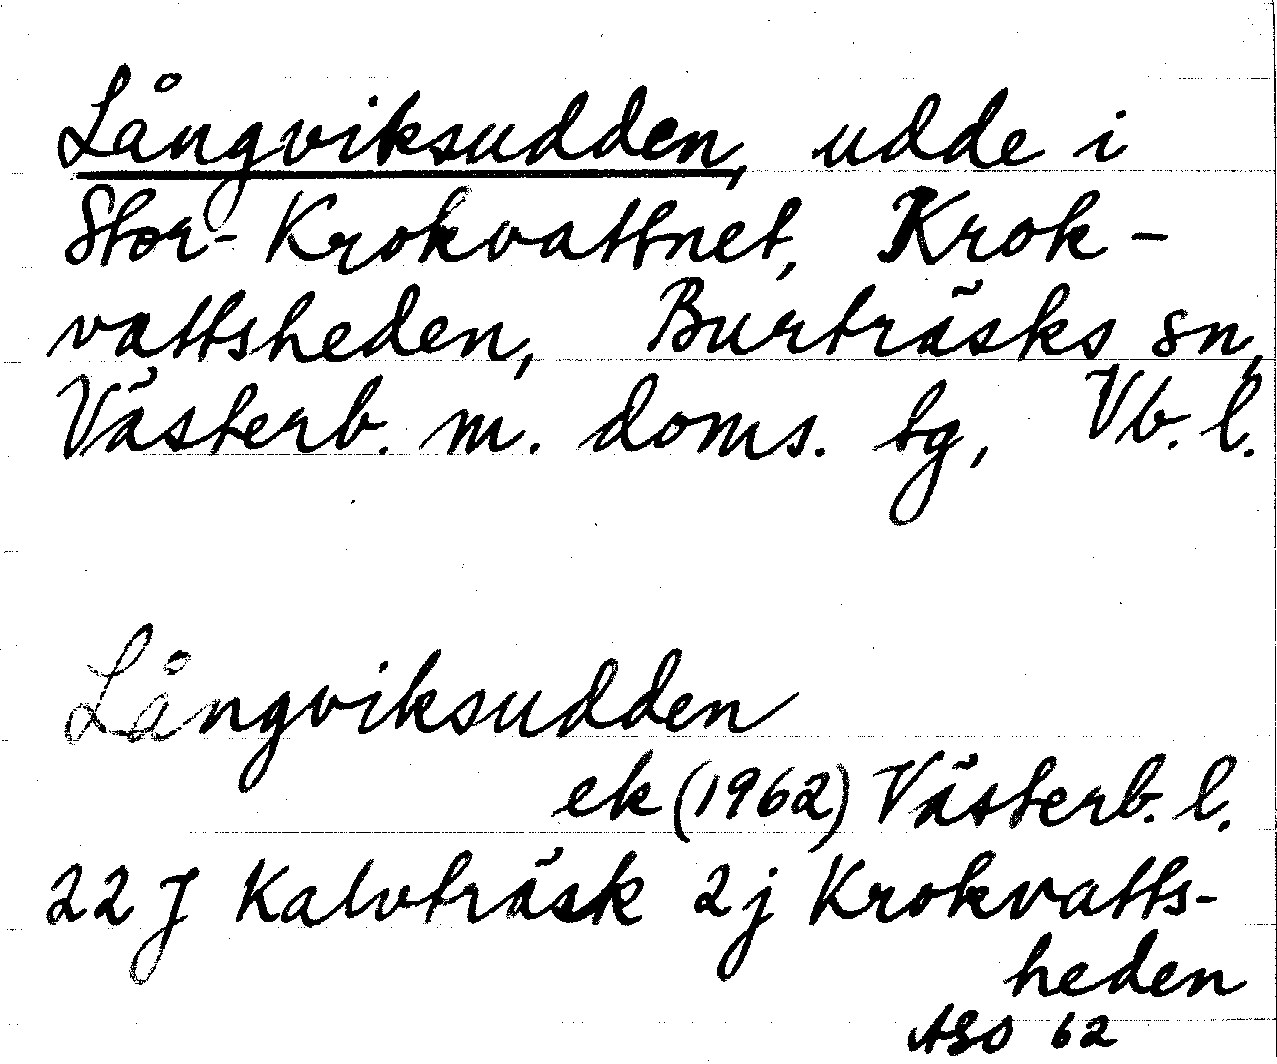 Långviksudden, udde i
Stor-Krokvattnet, Krok-
vattsheden, Burträsks sn,
Västerb. m. doms. tg, Vb. l.
Långviksudden
ek (1962) Västerb. l.
22 J Kalvträsk 2j Krokvatts-
heden
ASO 62